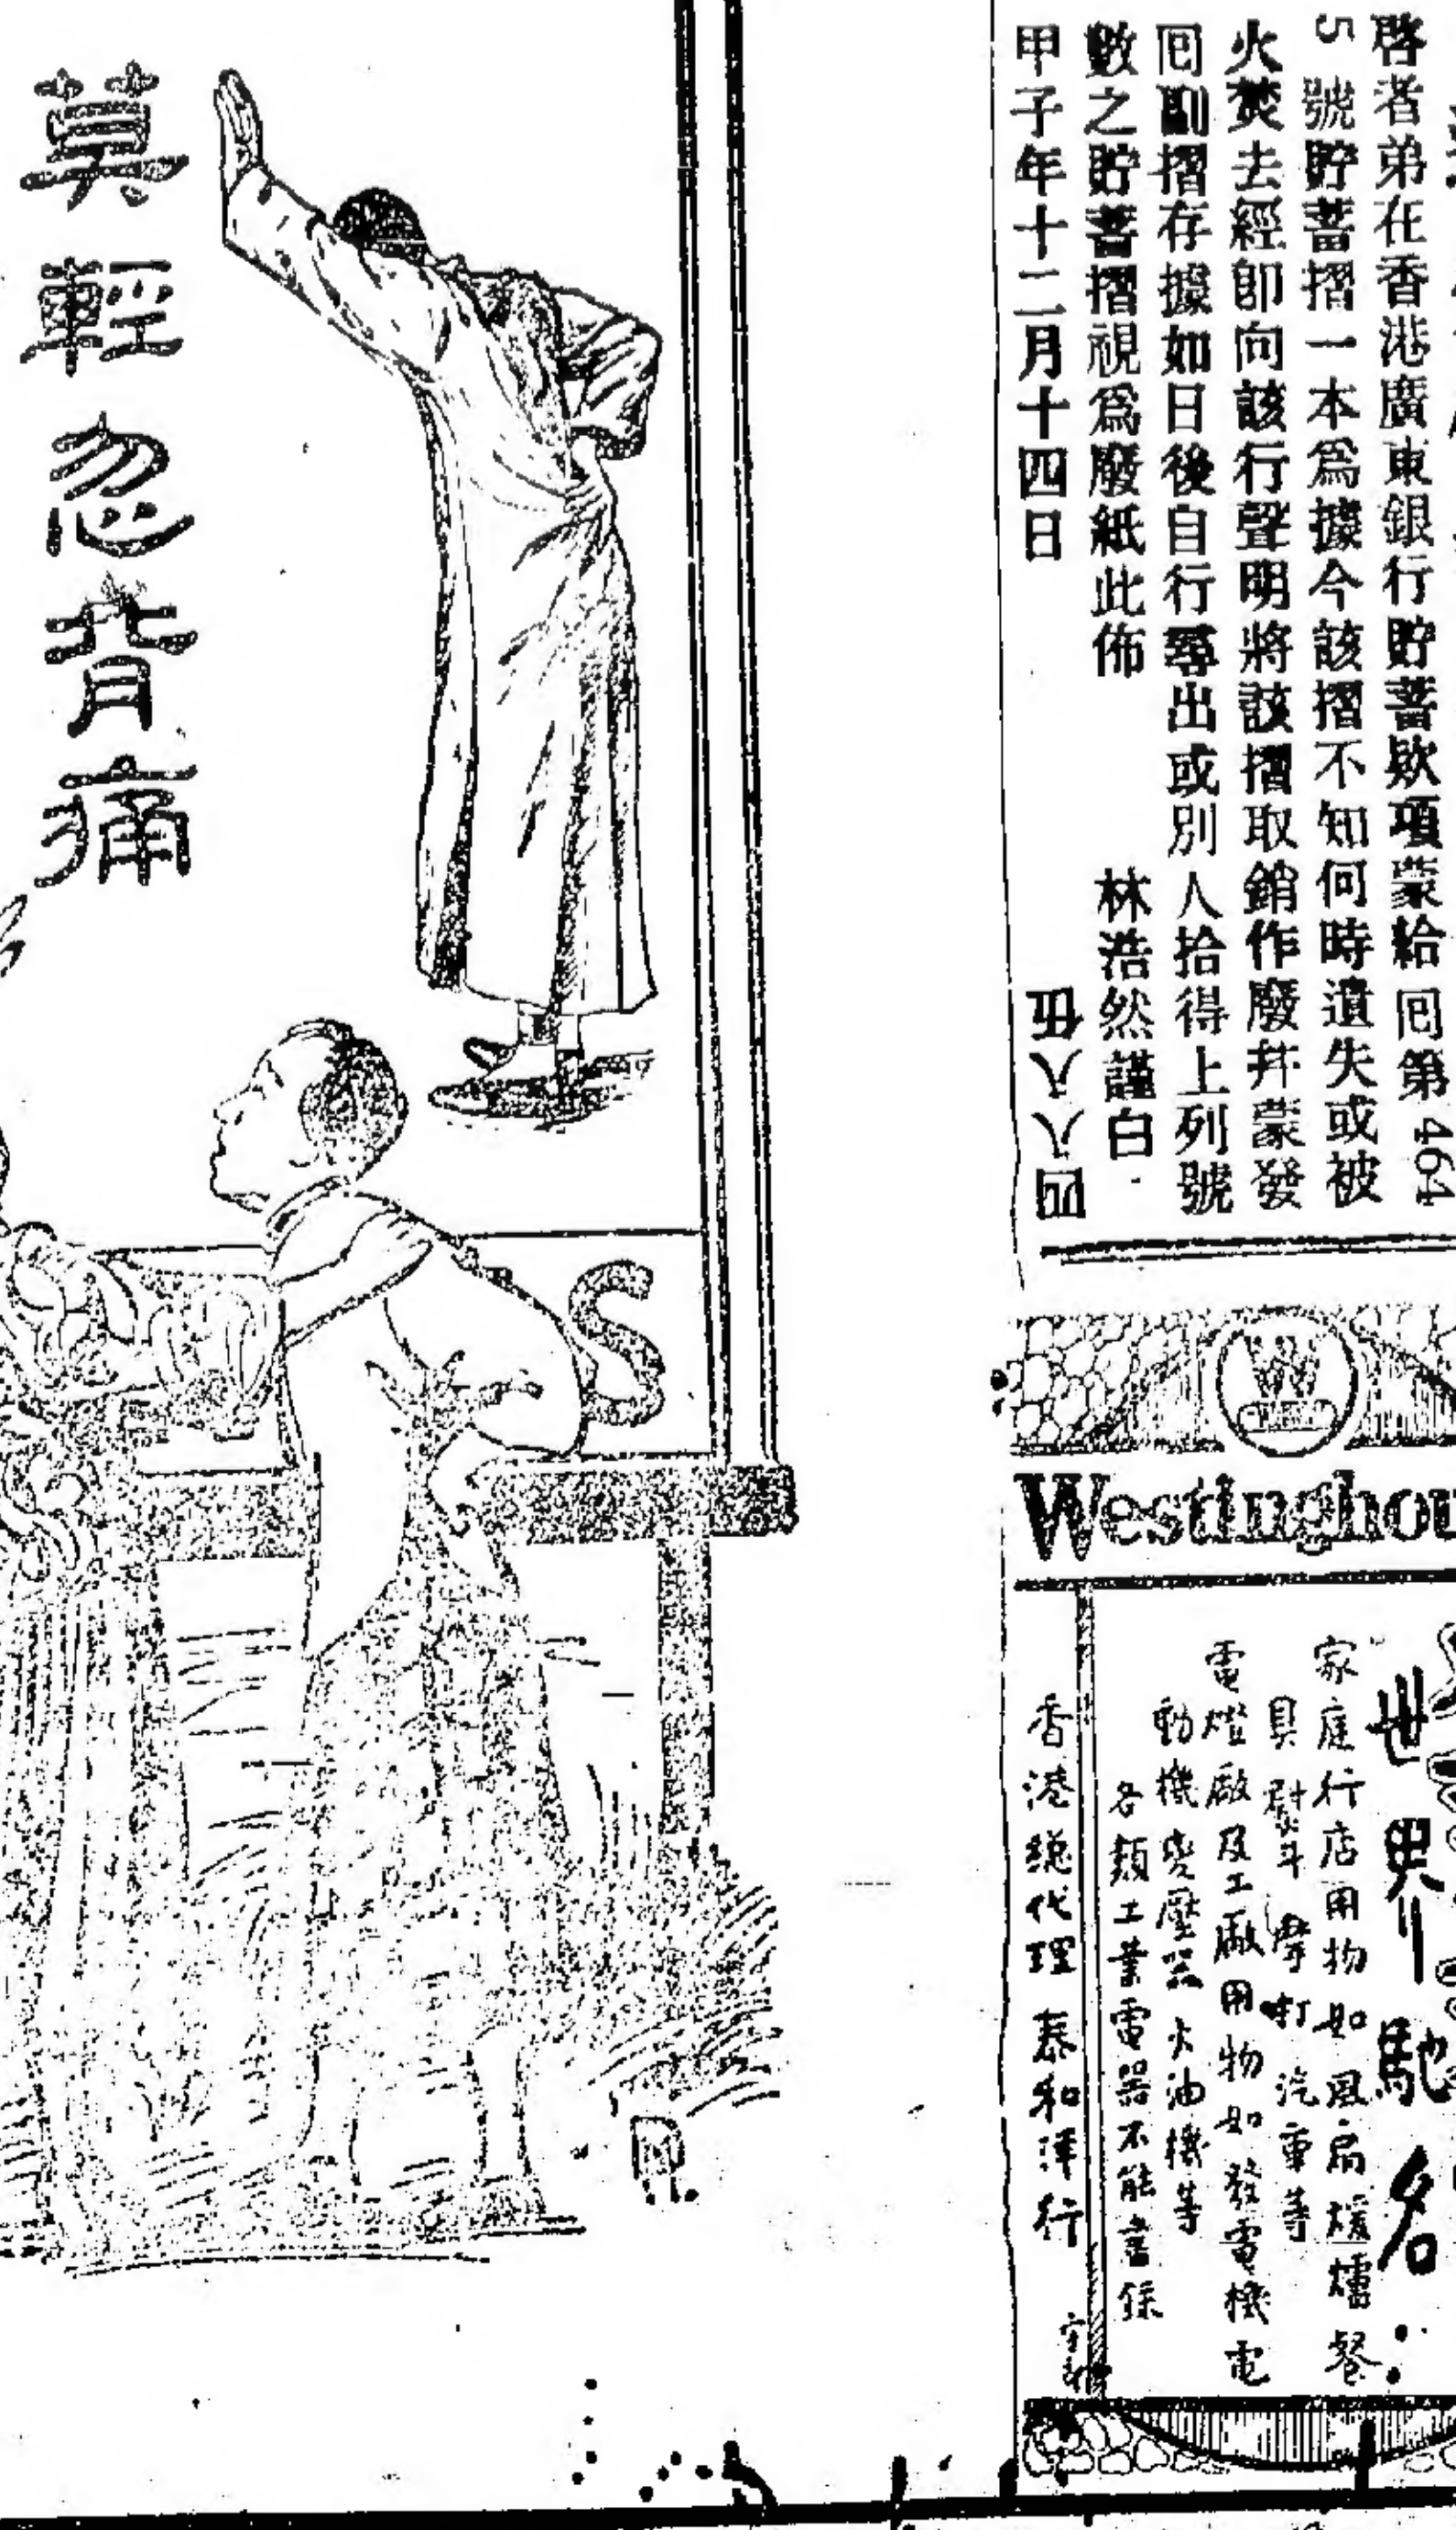 啓者弟在香港廣東銀行貯蓄欵項蒙給囘第464
5號貯蓄摺一本爲據今該摺不知何時遺失或被
火焚去經卽向該行聲明將該摺取銷作廢幷蒙發
囘副摺存據如日後自行尋出或別人拾得上列號
數之貯蓄摺視爲廢紙此佈 林浩然謹白
甲子年十二月十四日 伍八八四
Westinghou
世界馳名
家庭行店用物如風扇煖爐餐
具熨斗摩打汽車等
電燈廠及工廠用物如發電機電
動機變壓器火油機等
各類工業電器不能盡錄
香港總代理泰和洋行
莫輕忽背痛
S